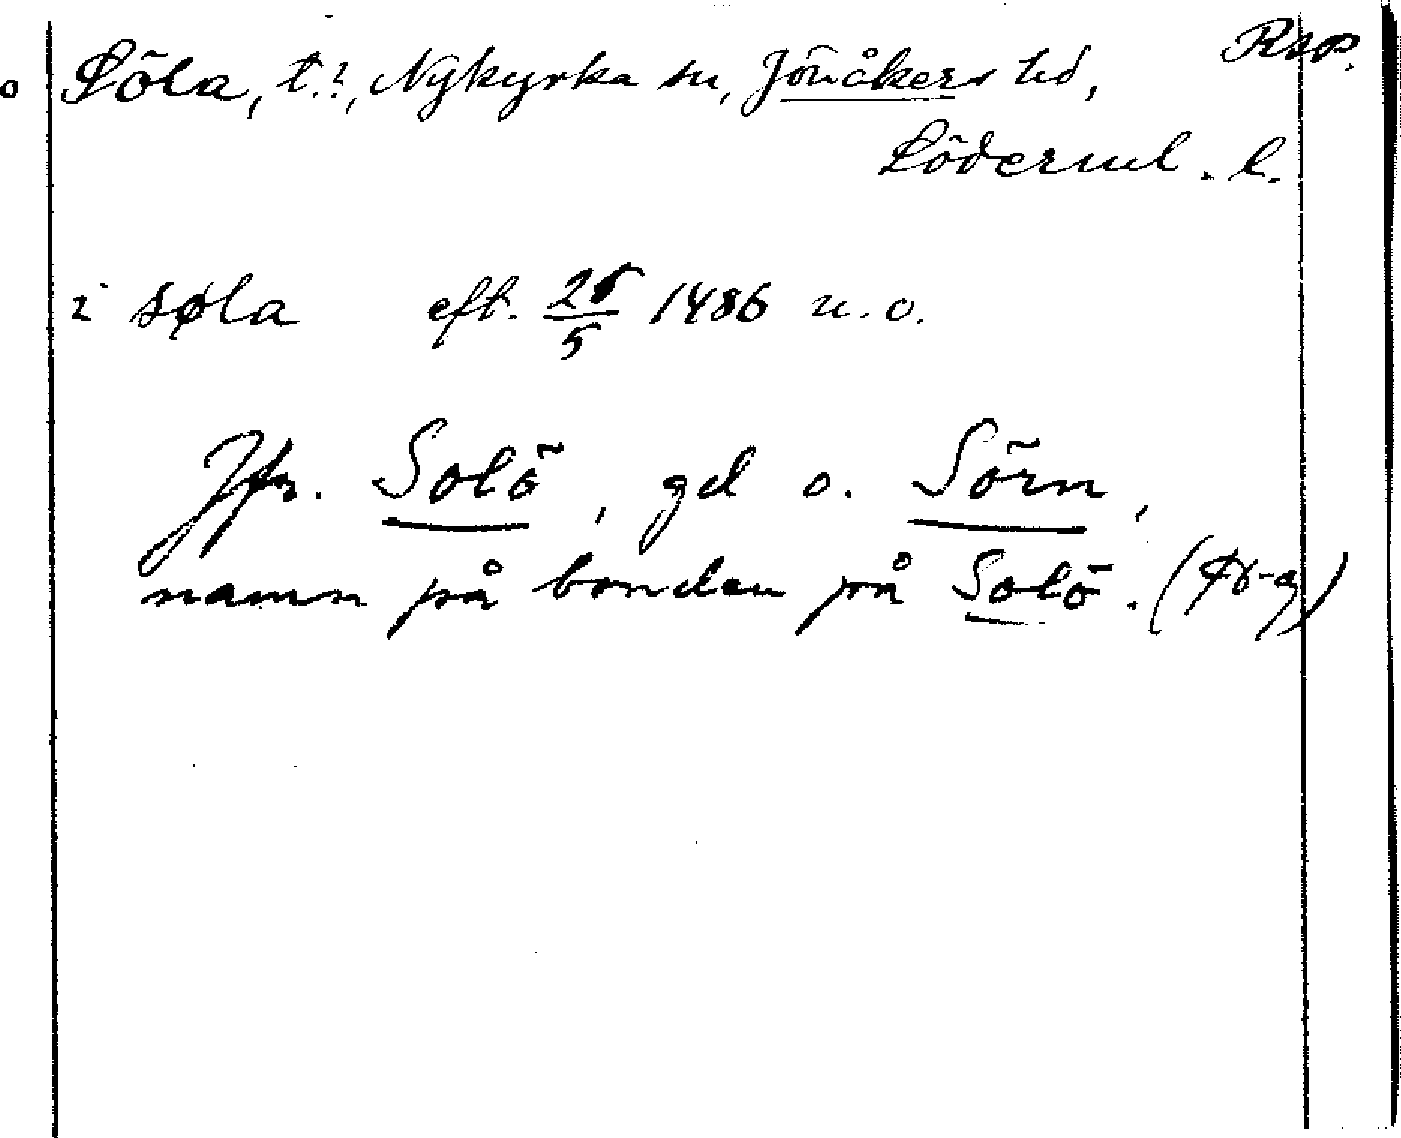 Rsp.
o Söla, t.?, Nykyrka sn, Jönåkers hd,
Söderml. l.
i søla eft. 25/5 1486 u.o.
Jfr. Solö, gd o. Sörn,
namn på bonden på Solö. (Hb-g)